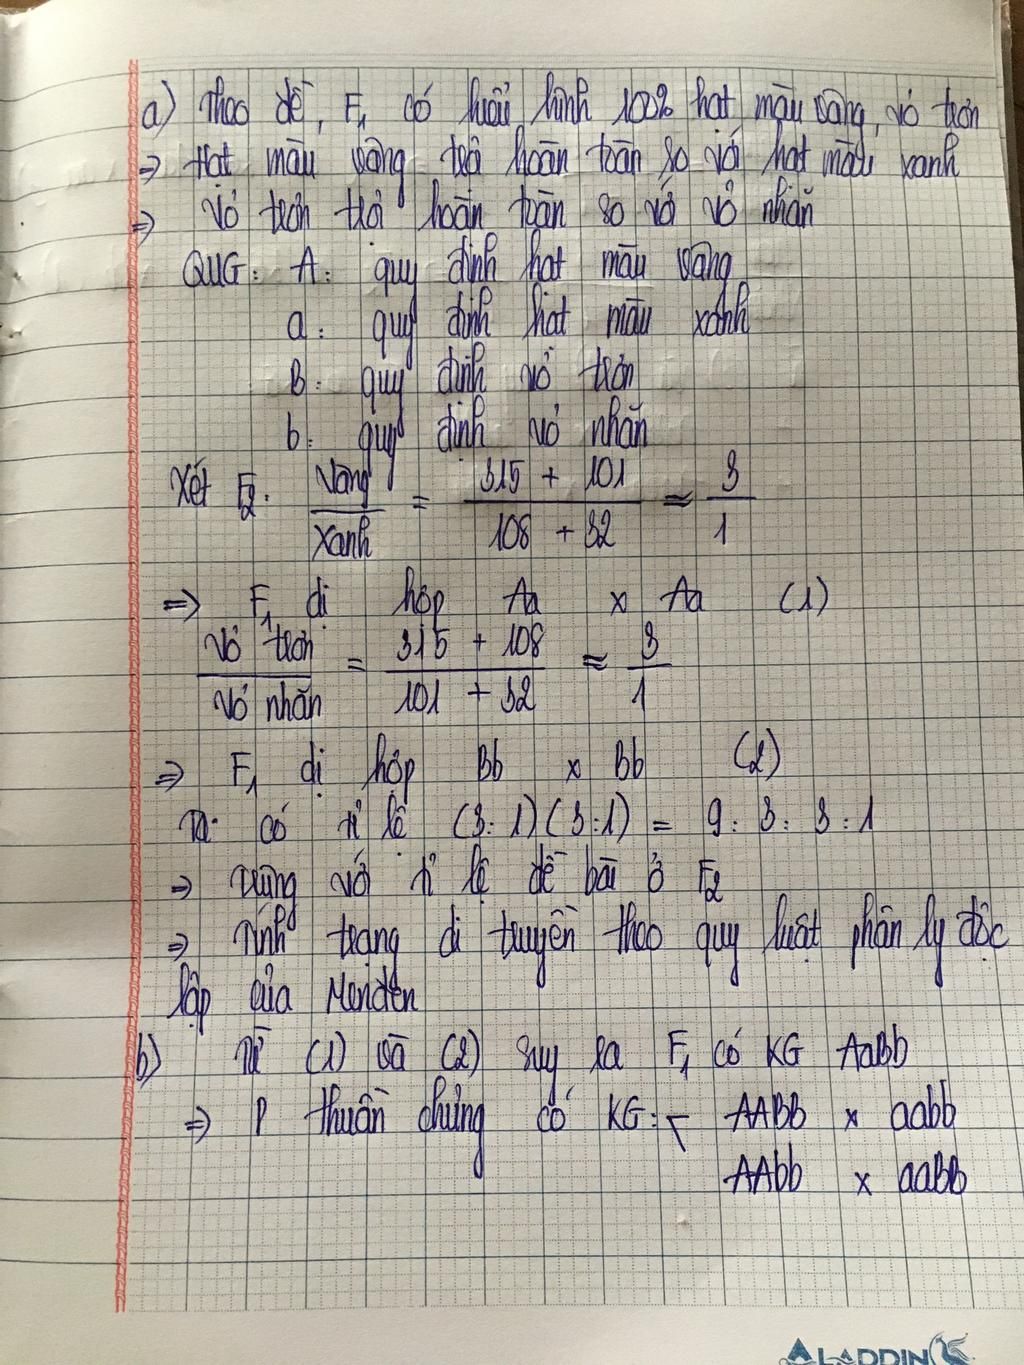 a) Theo đề, F1 có kiểu hình 100% hạt màu vàng, vỏ trơn
⇒ Hạt màu vàng trội hoàn toàn so với hạt màu xanh
⇒ Vỏ trơn trội hoàn toàn so với vỏ nhăn
QUG: A: quy định hạt màu vàng
a: quy định hạt màu xanh
B: quy định vỏ trơn
b: quy định vỏ nhăn
Xét F2: Vàng/Xanh = (315 + 101)/(108 + 32) ≈ 3/1
⇒ F1 dị hợp Aa x Aa (1)
Vỏ trơn/Vỏ nhăn = (315 + 108)/(101 + 32) ≈ 3/1
⇒ F1 dị hợp Bb x Bb (2)
Ta có tỉ lệ (3:1)(3:1) = 9:3:3:1
⇒ trùng với tỉ lệ đề bài ở F2
⇒ Tính trạng di truyền theo quy luật phân ly độc
lập của Menđen
b) Từ (1) và (2) suy ra F1 có KG AaBb
⇒ P thuần chủng có KG: AABB x aabb
AAbb x aaBB
ALADDIN